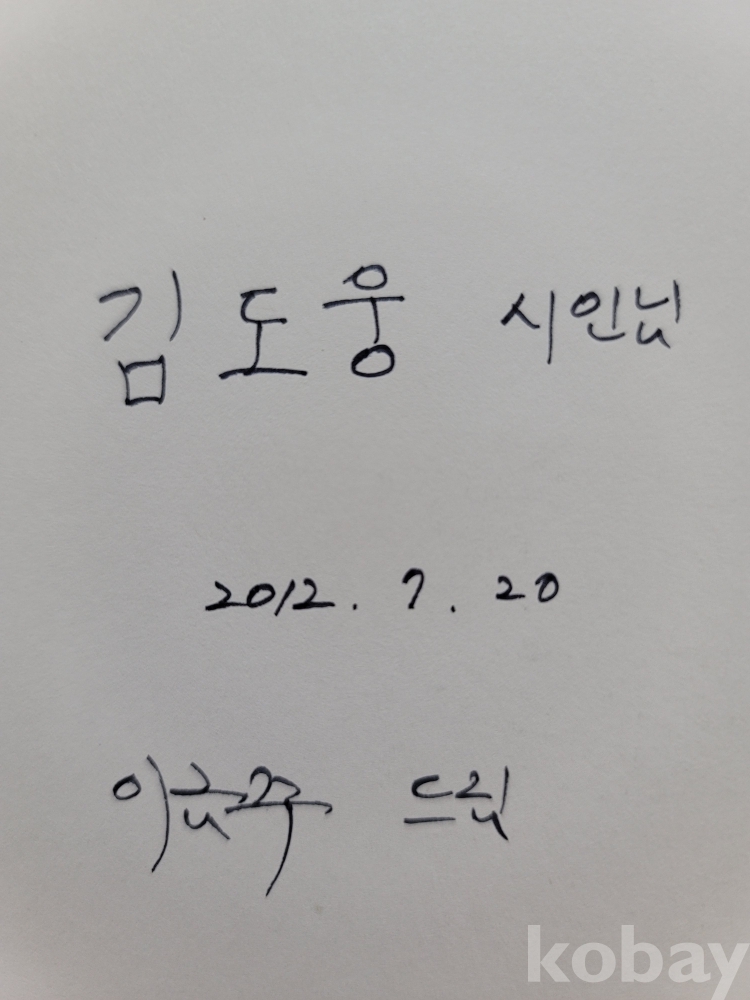 김도웅 시인님
2012. 7. 20
이금주 드림
kobay